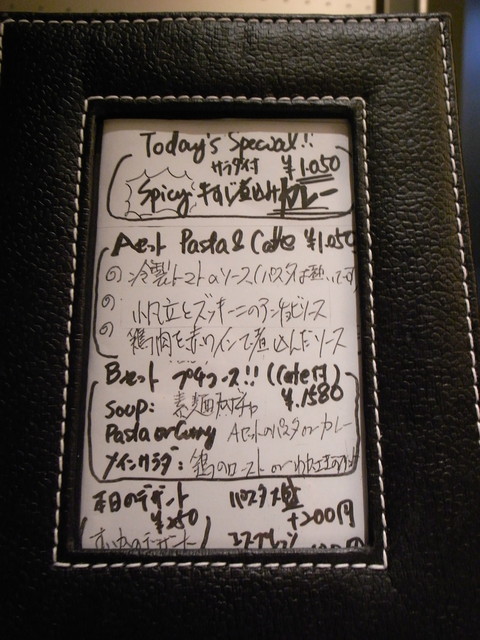 Today's Special!!
サラダ付 ¥1.050
Spicy 牛すじ煮込み カレー
Aセット Pasta & Caffe ¥1.050
の 冷製トマトのソース(パスタは熱いです
の 小帆立とズッキーニのアンチョビソース
の 鶏肉を赤ワインで煮込んだソース
Bセット プチコース!! (Cafe付)
¥.1580
Soup: 素麺
Pasta or Curry AセットのパスタorカレーPasta
メインサラダ: 鶏のロースト or
本日のデザート パスタ大盛
¥250 +200円
すいかの エスプレッソ